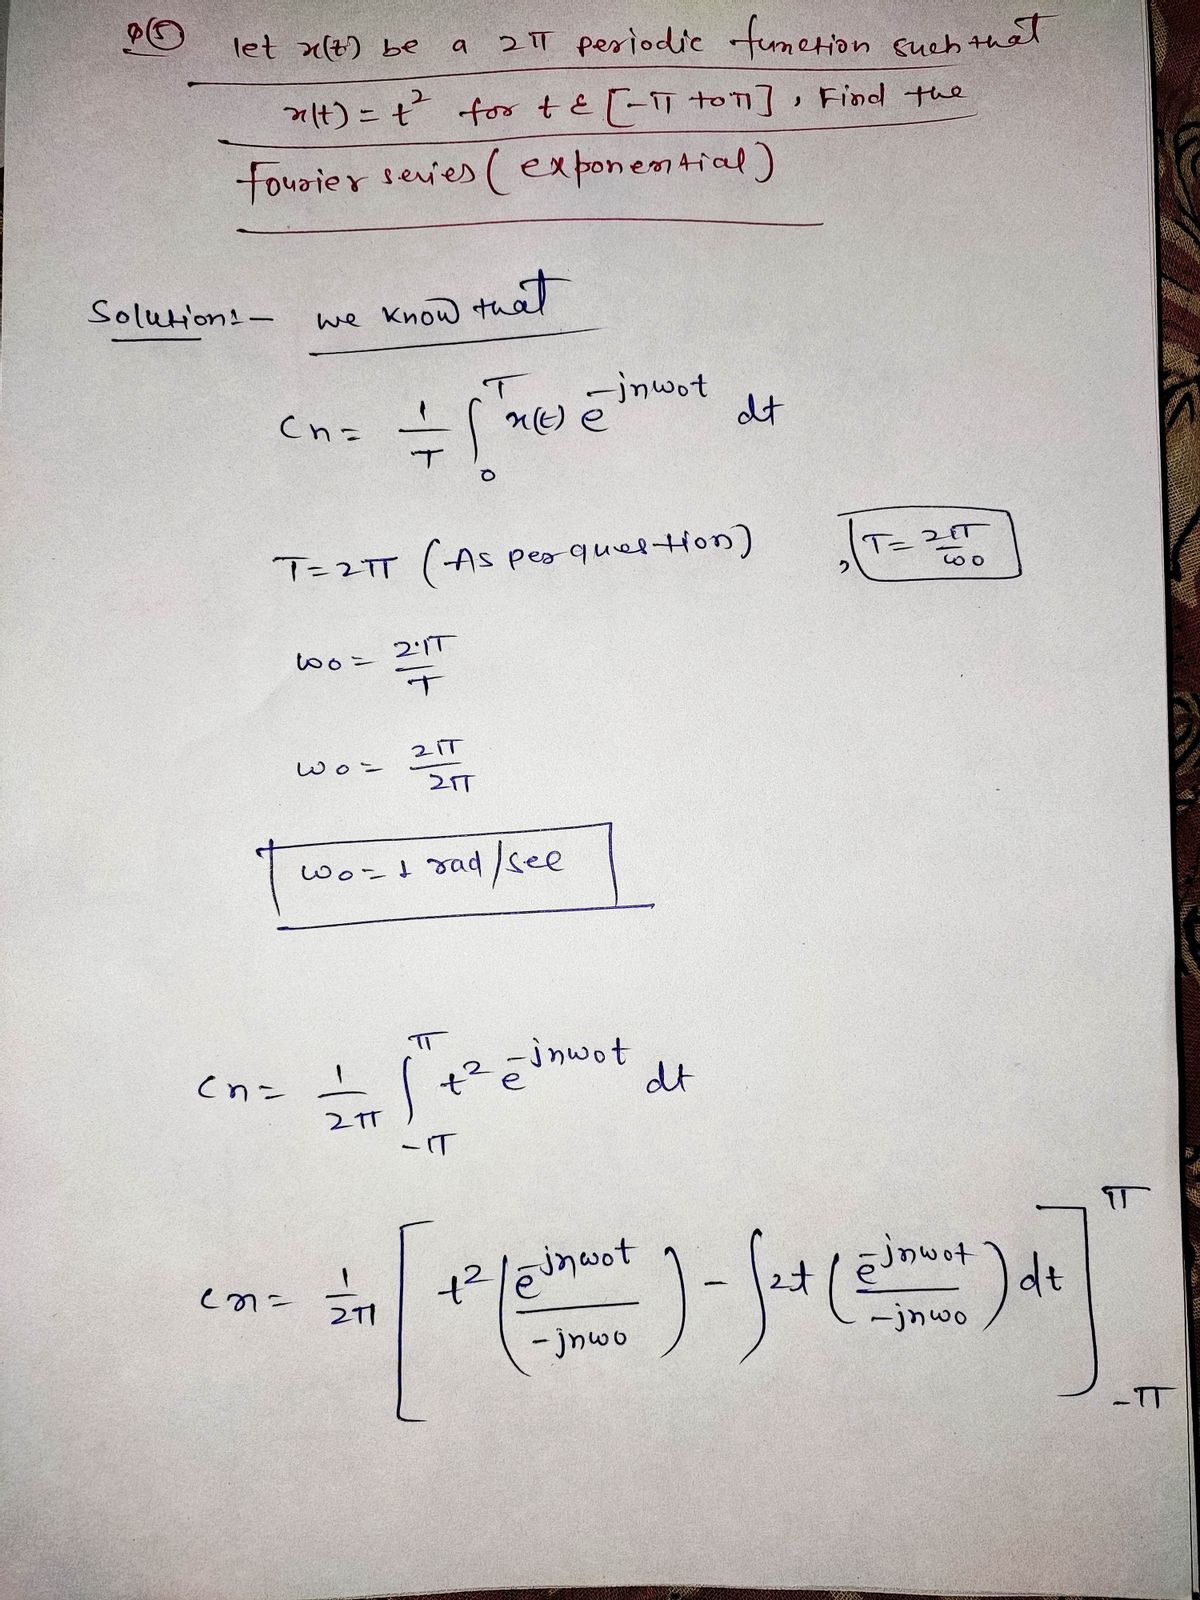 Q(5) let x(t) be a 2π periodic function such that
x(t) = t² for t ε [-π to π], Find the
fourier series (exponential)
Solution:- we know that
Cn = 1/T ∫₀ᵀ x(t) e^-jnwot dt
T = 2π (As per question) , T = 2π/ωo
ωo = 2π/T
ωo = 2π/2π
ωo = 1 rad/sec
Cn = 1/2π ∫_-π^π t² e^-jnwot dt
Cn = 1/2π [ t² (e^-jnwot / -jnwo) - ∫ 2t (e^-jnwot / -jnwo) dt ]_-π^π